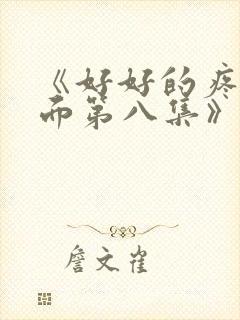 《好好的疼
而第八集》
詹文雀